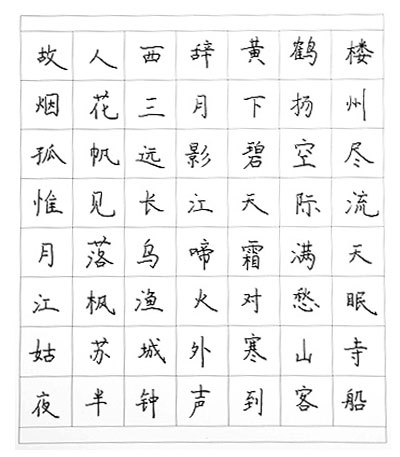 故人西辞黄鹤楼
烟花三月下扬州
孤帆远影碧空尽
惟见长江天际流
月落乌啼霜满天
江枫渔火对愁眠
姑苏城外寒山寺
夜半钟声到客船